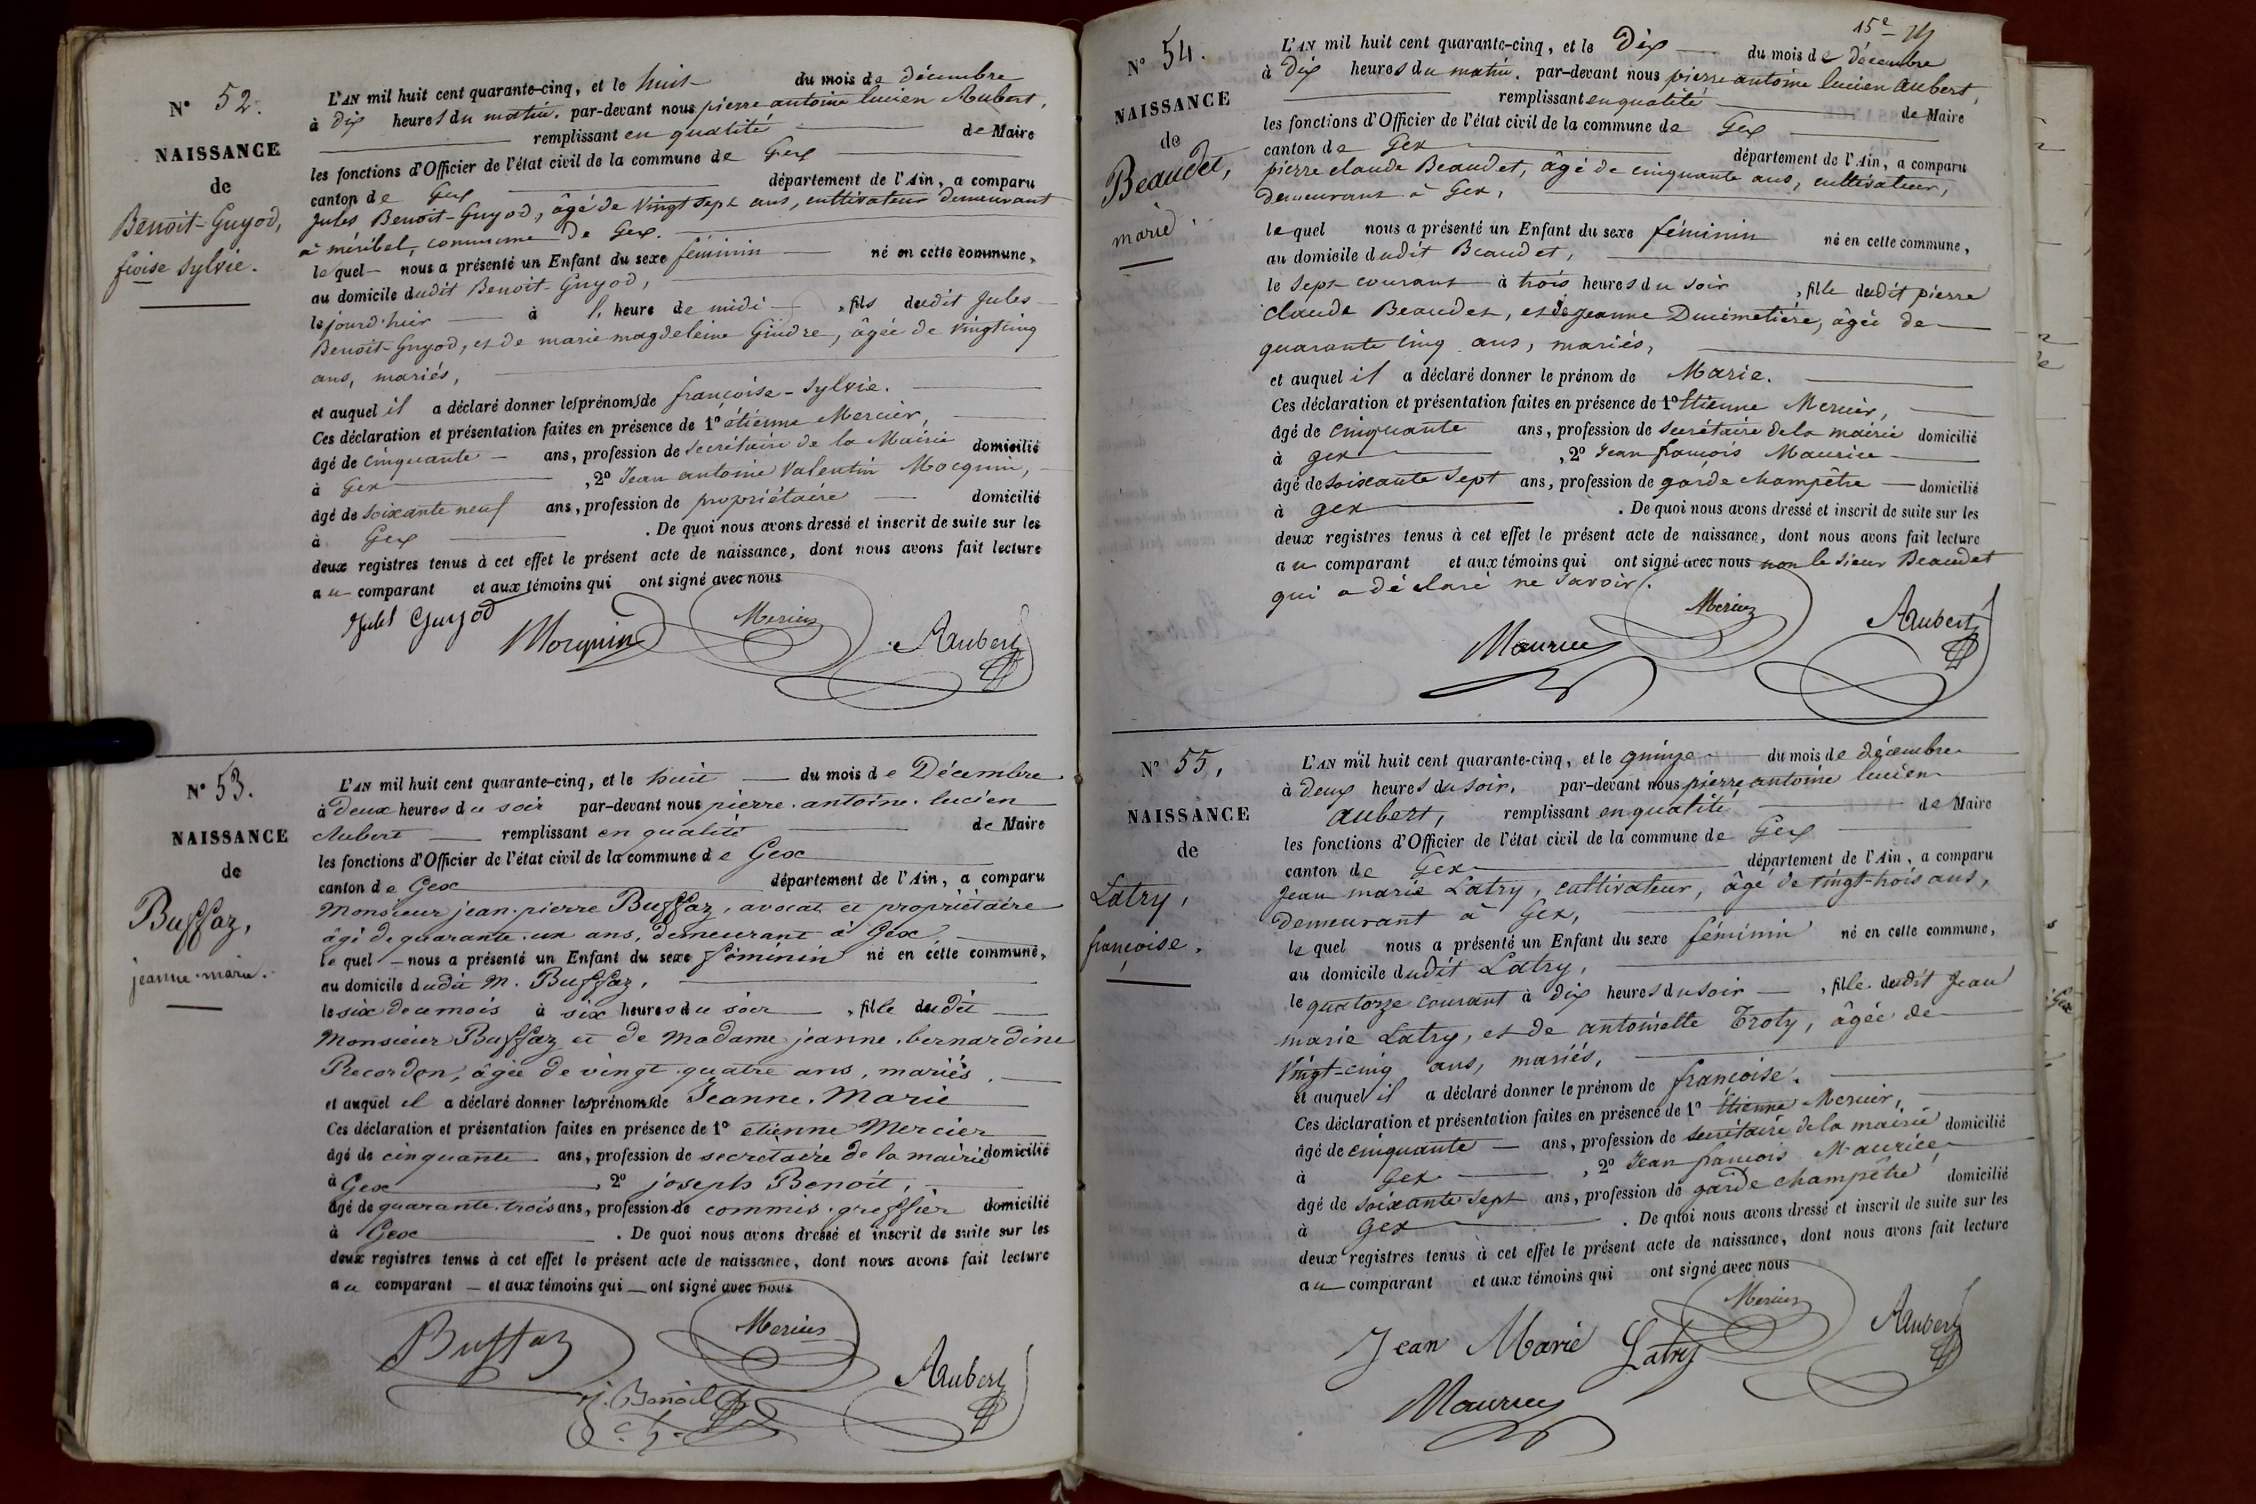 N° 52.
NAISSANCE
de
Benoit-Guyod,
fçoise Sylvie.
L'AN mil huit cent quarante-cinq, et le huit du mois de décembre
à dix heures du matin, par-devant nous pierre antoine lucien Aubert,
remplissant en qualité de Maire
les fonctions d'Officier de l'état civil de la commune de Gex
canton de Gex département de l'Ain, a comparu
Jules Benoit-Guyod, âgé de vingt sept ans, cultivateur demeurant
à méribel, commune de Gex.
lequel nous a présenté un Enfant du sexe féminin né en cette commune,
au domicile dudit Benoit-Guyod,
lejourd'hui à 1, heure de midi, fils dudit Jules
Benoit-Guyod, et de marie magdeleine Gindre, âgée de vingt cinq
ans, mariés,
et auquel il a déclaré donner les prénoms de françoise-Sylvie.
Ces déclaration et présentation faites en présence de 1° étienne Mercier,
âgé de cinquante ans, profession de Secrétaire de la Mairie domicilié
à Gex, 2° Jean antoine Valentin Mocquin,
âgé de soixante neuf ans, profession de propriétaire domicilié
à Gex. De quoi nous avons dressé et inscrit de suite sur les
deux registres tenus à cet effet le présent acte de naissance, dont nous avons fait lecture
au comparant et aux témoins qui ont signé avec nous
Jules Guyod Mocquin Mercier AAubert
N° 53.
NAISSANCE
de
Buffaz,
jeanne-marie.
L'AN mil huit cent quarante-cinq, et le huit du mois de Décembre
à deux heures du soir par-devant nous pierre antoine lucien
Aubert remplissant en qualité de Maire
les fonctions d'Officier de l'état civil de la commune de Gex
canton de Gex département de l'Ain, a comparu
Monsieur jean-pierre Buffaz, avocat et propriétaire
âgé de quarante-un ans, demeurant à Gex
lequel nous a présenté un Enfant du sexe féminin né en cette commune,
au domicile dudit M. Buffaz,
le six de ce mois à six heures du soir, fille dudit
Monsieur Buffaz et de Madame jeanne-bernardine
Recordon, âgée de vingt-quatre ans, mariés.
et auquel il a déclaré donner les prénoms de Jeanne-Marie
Ces déclaration et présentation faites en présence de 1° etienne Mercier
âgé de cinquante ans, profession de secrétaire de la mairie domicilié
à Gex, 2° joseph Benoit,
âgé de quarante-trois ans, profession de commis-greffier domicilié
à Gex. De quoi nous avons dressé et inscrit de suite sur les
deux registres tenus à cet effet le présent acte de naissance, dont nous avons fait lecture
au comparant et aux témoins qui ont signé avec nous
Buffaz Mercier
J. Benoit AAubert
15e
N° 54.
NAISSANCE
de
Beaudet,
marie.
L'AN mil huit cent quarante-cinq, et le dix du mois de décembre
à dix heures du matin, par-devant nous pierre antoine lucien aubert,
remplissant en qualité de Maire
les fonctions d'Officier de l'état civil de la commune de Gex
canton de Gex département de l'Ain, a comparu
pierre claude Beaudet, âgé de cinquante ans, cultivateur,
demeurant à Gex,
lequel nous a présenté un Enfant du sexe féminin né en cette commune,
au domicile dudit Beaudet,
le Sept courant à trois heures du soir, fille dudit pierre
claude Beaudet, et de jeanne Ducimetière, âgée de
quarante cinq ans, mariés,
et auquel il a déclaré donner le prénom de Marie.
Ces déclaration et présentation faites en présence de 1° Etienne Mercier,
âgé de cinquante ans, profession de secrétaire de la mairie domicilié
à gex, 2° Jean françois Maurice
âgé de soixante sept ans, profession de garde champêtre domicilié
à gex. De quoi nous avons dressé et inscrit de suite sur les
deux registres tenus à cet effet le présent acte de naissance, dont nous avons fait lecture
au comparant et aux témoins qui ont signé avec nous non le sieur Beaudet
qui a déclaré ne savoir.
Maurice Mercier AAubert
N° 55,
NAISSANCE
de
Latry,
françoise.
L'AN mil huit cent quarante-cinq, et le quinze du mois de décembre
à deux heures du soir, par-devant nous pierre antoine lucien
aubert, remplissant en qualité de Maire
les fonctions d'Officier de l'état civil de la commune de Gex
canton de Gex département de l'Ain, a comparu
Jean marie Latry, cultivateur, âgé de vingt-trois ans,
demeurant à Gex,
lequel nous a présenté un Enfant du sexe féminin né en cette commune,
au domicile dudit Latry,
le quatorze courant à dix heures du soir, fille dudit Jean
marie Latry, et de antoinette Troty, âgée de
vingt-cinq ans, mariés,
et auquel il a déclaré donner le prénom de françoise.
Ces déclaration et présentation faites en présence de 1° Etienne Mercier,
âgé de cinquante ans, profession de secrétaire de la mairie domicilié
à Gex, 2° Jean françois Maurice,
âgé de soixante sept ans, profession de garde champêtre domicilié
à Gex. De quoi nous avons dressé et inscrit de suite sur les
deux registres tenus à cet effet le présent acte de naissance, dont nous avons fait lecture
au comparant et aux témoins qui ont signé avec nous
Jean Marie Latry Mercier AAubert
Maurice